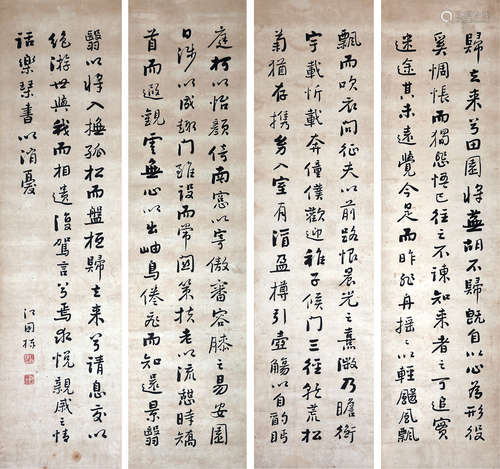 歸去來兮田園將蕪胡不歸既以心為形役
奚惆悵而獨悲悟已往之不諫知來者之可追實
迷途其未遠覺今是而昨非舟搖々以輕颺風飄
飄而吹衣問征夫以前路恨晨光之熹微乃瞻衡
宇載忻載奔僮僕歡迎稚子候門三徑就荒松
菊猶存攜幼入室有酒盈樽引壺觴以自酌眄
庭柯以怡顏倚南窗以寄傲審容膝之易安園
日涉以成趣門雖設而常關策扶老以流憩時矯
首而遐觀雲無心以出岫鳥倦飛而知還景翳
翳以將入撫孤松而盤桓歸去來兮請息交以
絕游世與我而相遺復駕言兮焉求悅親戚之情
話樂琴書以消憂